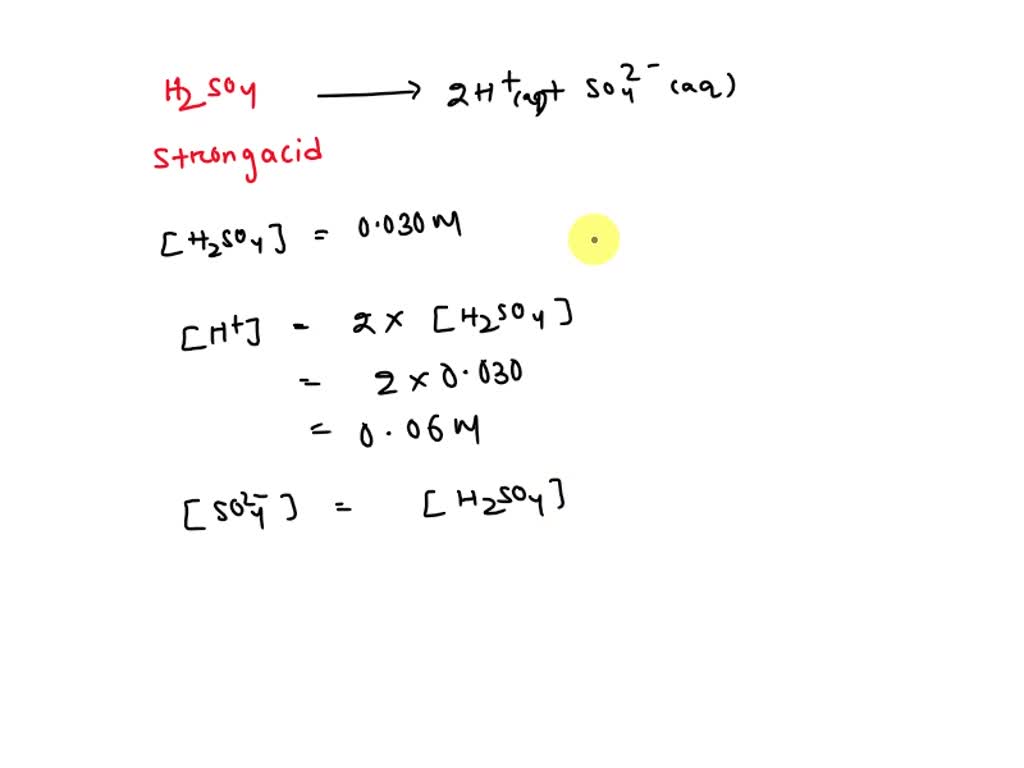 H2SO4 ⟶ 2H+(aq)+ SO4 2- (aq)
Strongacid
[H2SO4] = 0.030M
[H+] = 2 × [H2SO4]
= 2 × 0.030
= 0.06 M
[SO4 2-] = [H2SO4]